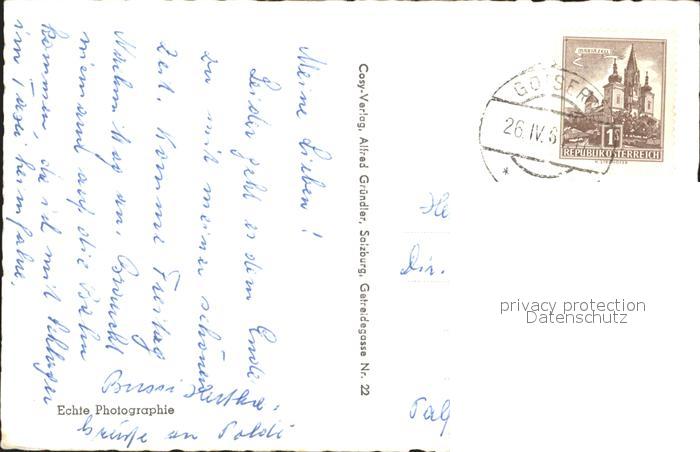 Meine Lieben!
Leider geht es dem Ende
zu mit meiner schönen
Zeit. Komme Freitag
Nachmittag an. Braucht
niemand auf die Bahn
kommen, da ich mit
im Taxi heimfahre.
Bussi
Grüsse an Poldi
Echte Photographie
Cosy-Verlag, Alfred Gründler, Salzburg, Getreidegasse Nr. 22
MARIAZELL
1S
REPUBLIK ÖSTERREICH
GOISER
26.IV.6
He
Dir.
privacy protection
Datenschutz